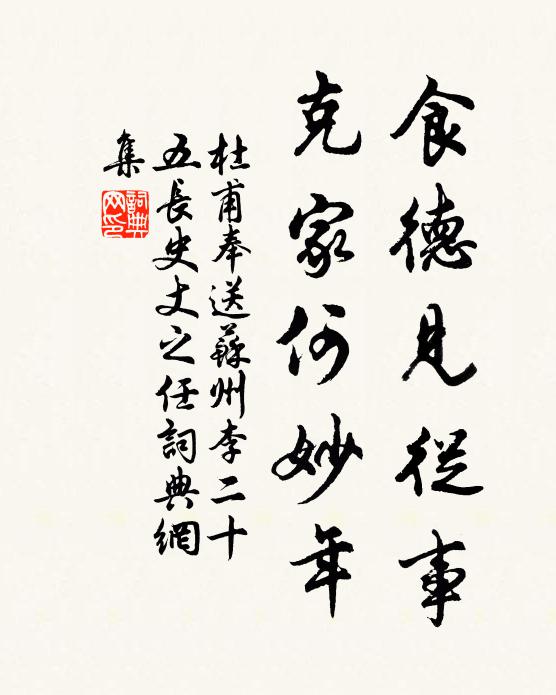 食德見從事
克家何妙年
杜甫奉送蘇州李二十
五長史丈之任詞典網
集
詞典
网印